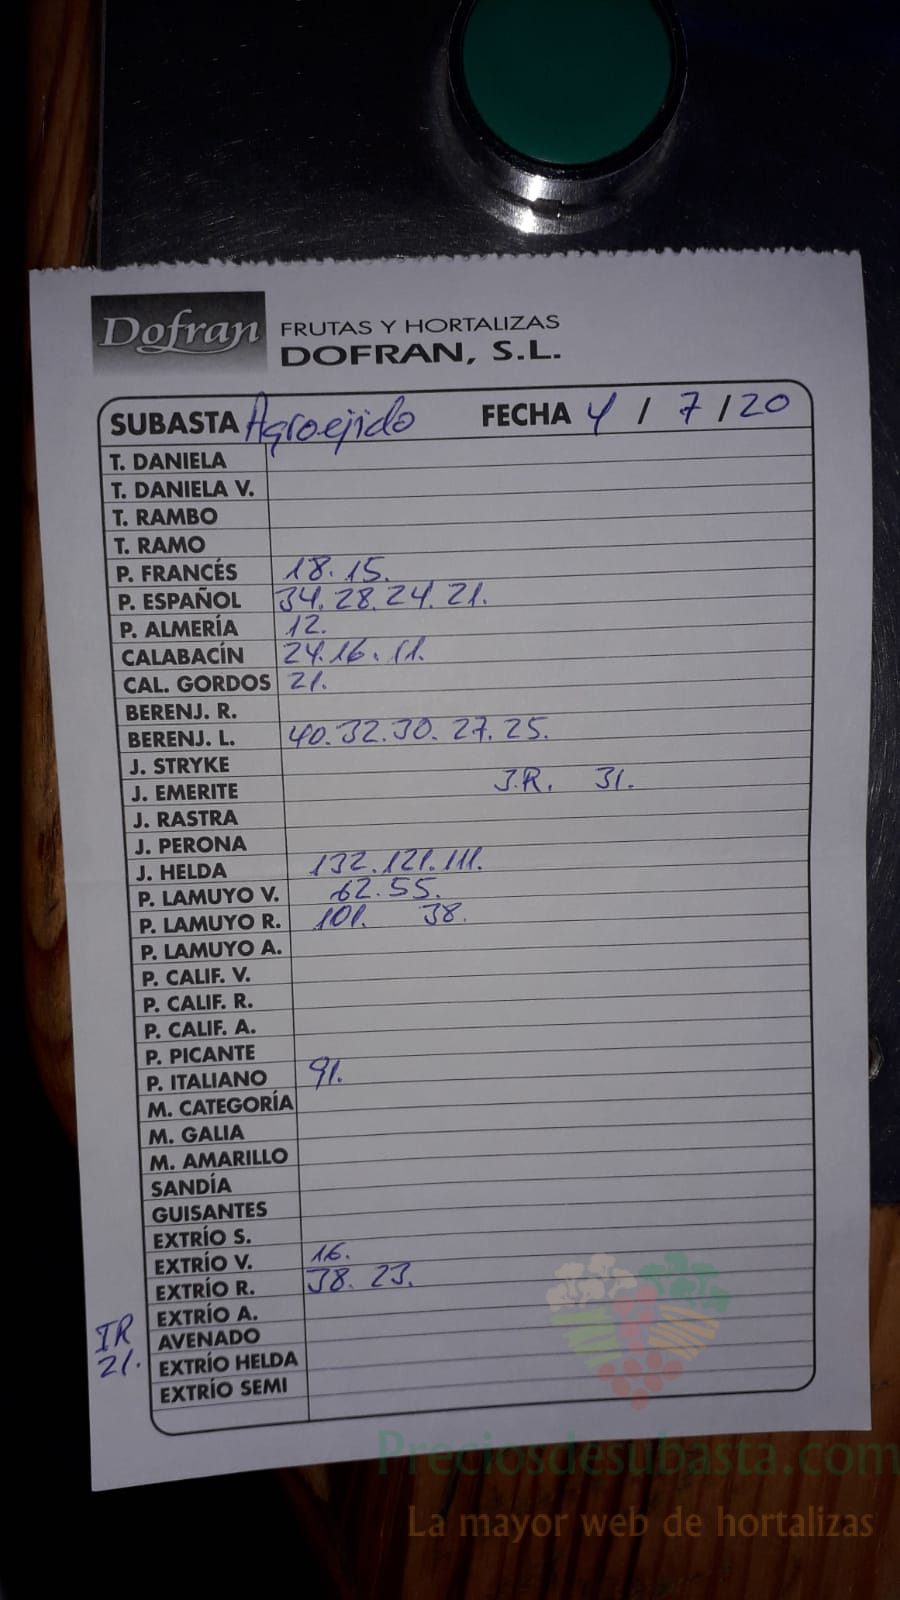 Dofran FRUTAS Y HORTALIZAS
DOFRAN, S.L.
SUBASTA Agroejido FECHA 4 / 7 / 20
T. DANIELA
T. DANIELA V.
T. RAMBO
T. RAMO
P. FRANCÉS 18. 15.
P. ESPAÑOL 34. 28. 24. 21.
P. ALMERÍA 12.
CALABACÍN 24. 16. 11.
CAL. GORDOS 21.
BERENJ. R.
BERENJ. L. 40. 32. 30. 27. 25.
J. STRYKE
J. EMERITE J.R. 31.
J. RASTRA
J. PERONA
J. HELDA 132. 121. 111.
P. LAMUYO V. 62. 55.
P. LAMUYO R. 101. 38.
P. LAMUYO A.
P. CALIF. V.
P. CALIF. R.
P. CALIF. A.
P. PICANTE
P. ITALIANO 91.
M. CATEGORÍA
M. GALIA
M. AMARILLO
SANDÍA
GUISANTES
EXTRÍO S.
EXTRÍO V. 16.
EXTRÍO R. 38. 23.
EXTRÍO A.
IR AVENADO
21. EXTRÍO HELDA
EXTRÍO SEMI
Preciosdesubasta.com
La mayor web de hortalizas